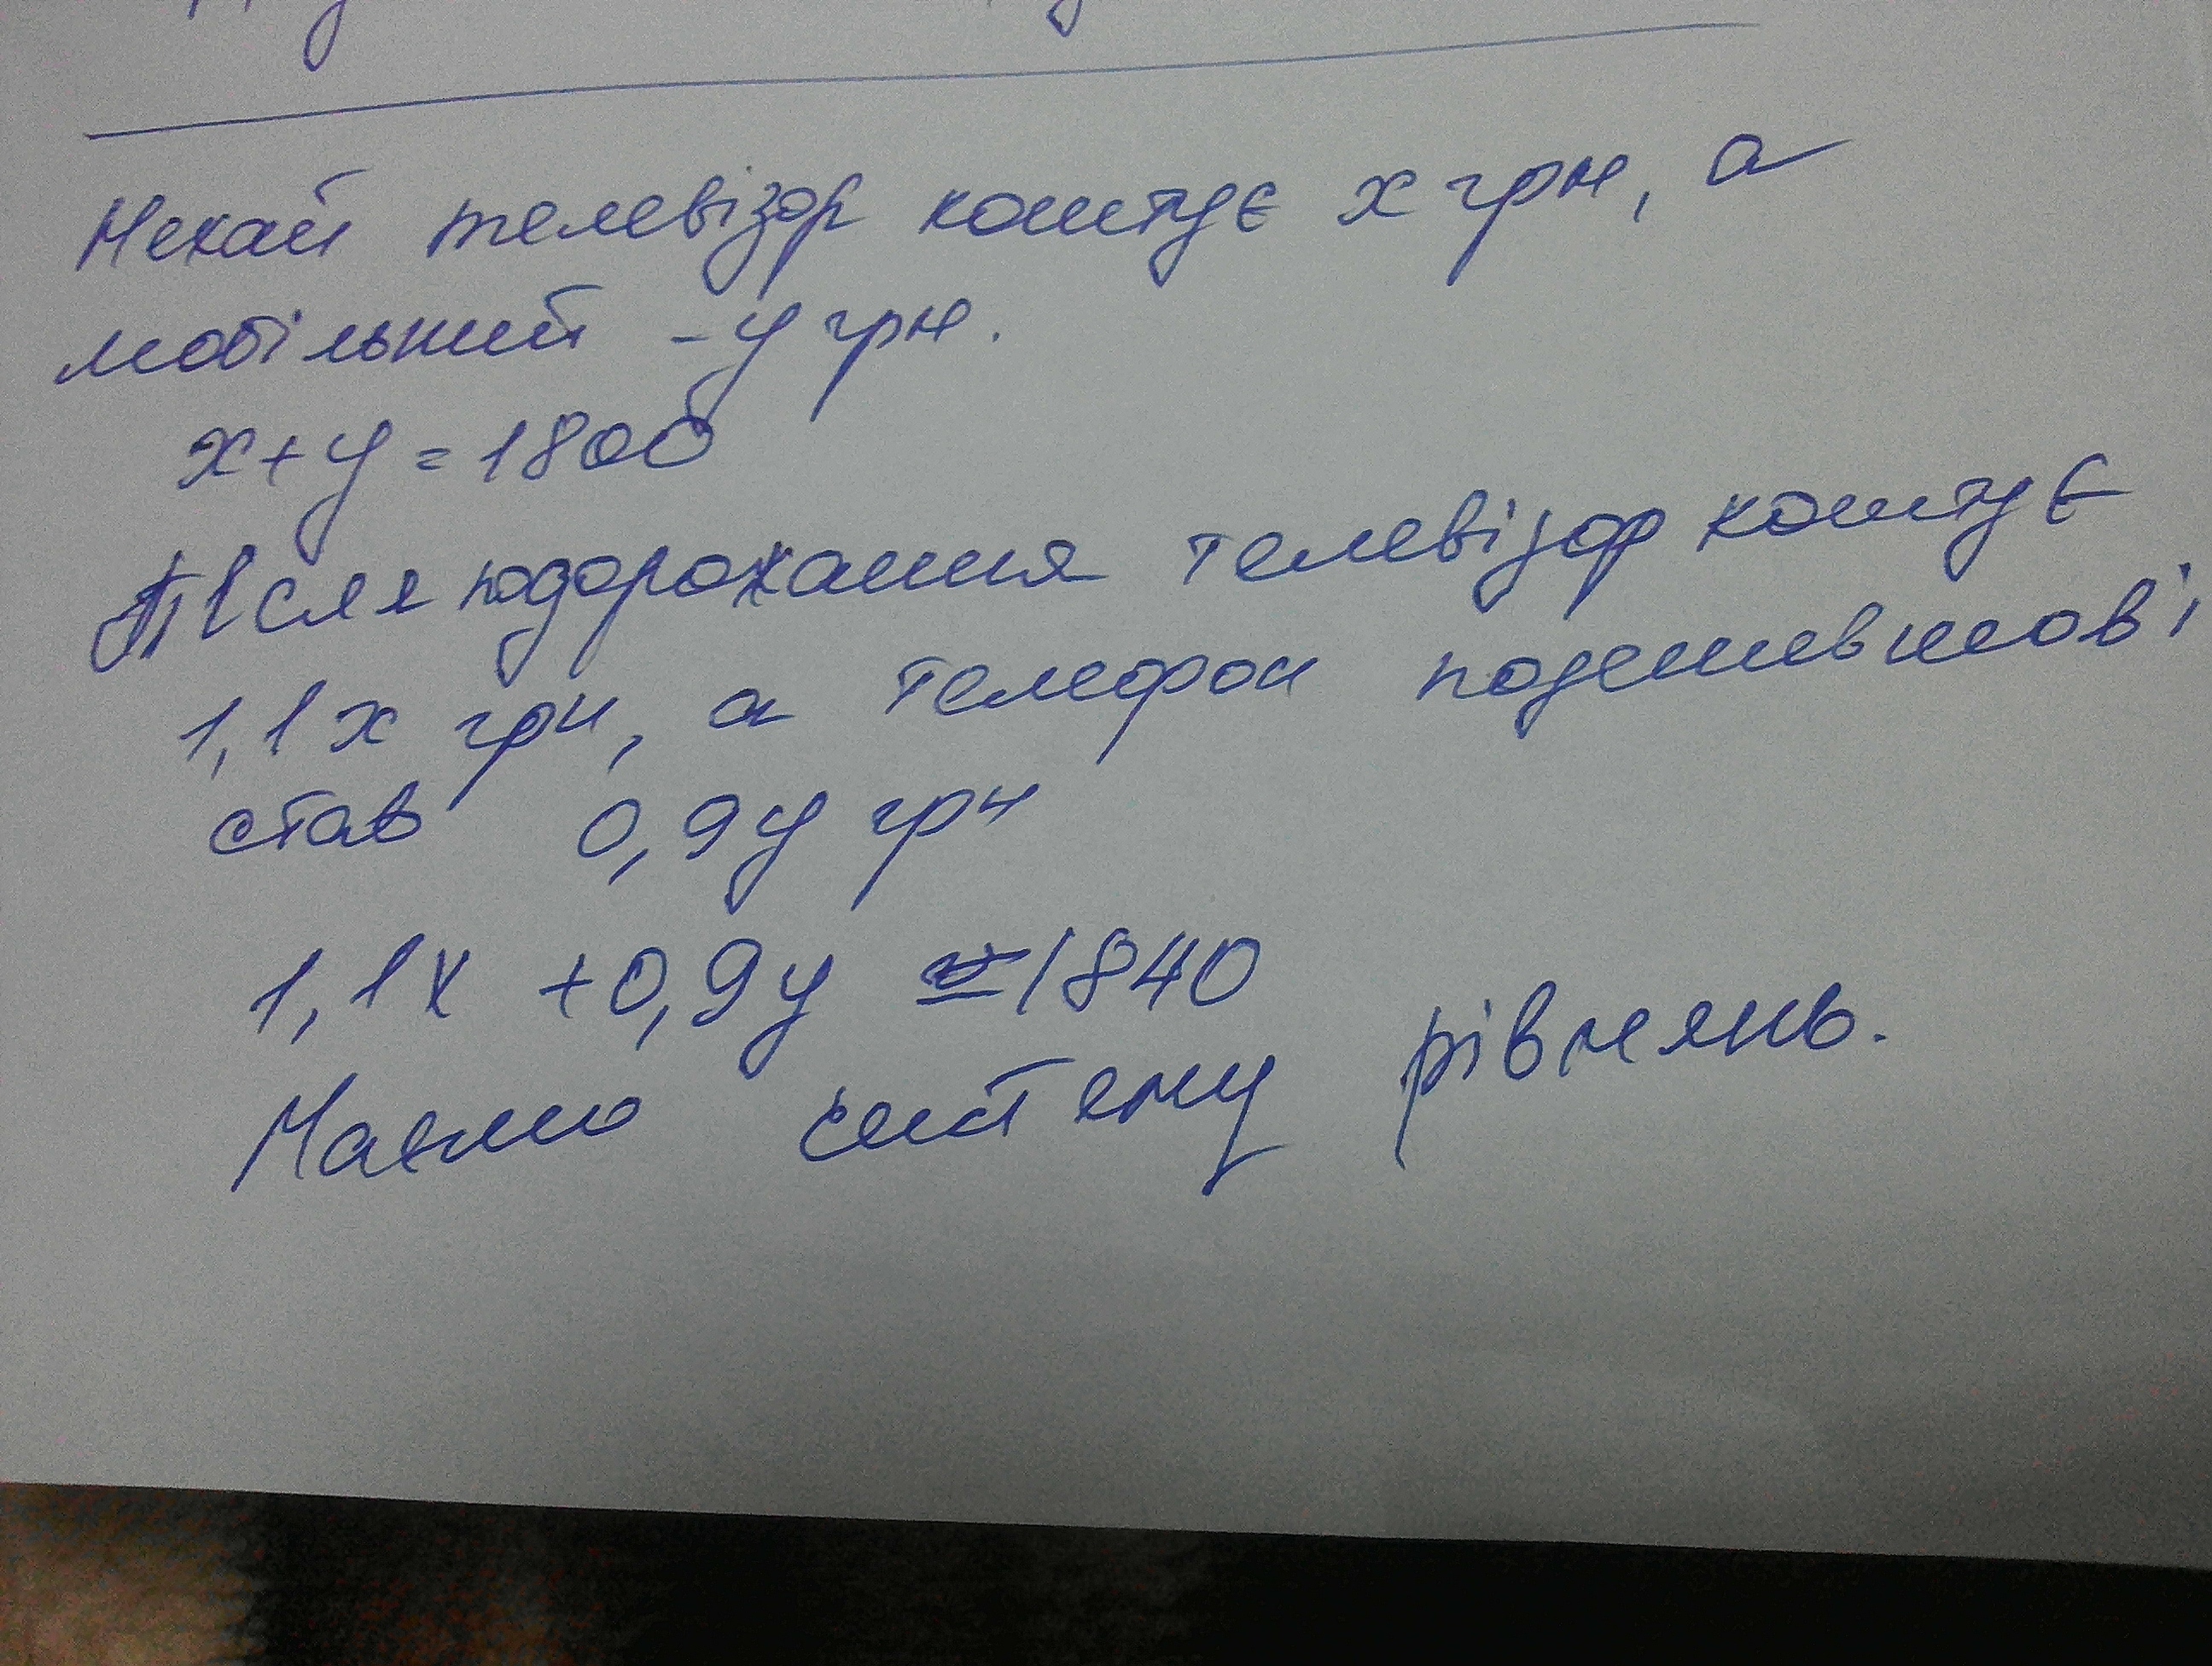 Нехай телевізор коштує x грн, а
мобільний - y грн.
x + y = 1800
Після подорожання телевізор коштує
1,1 x грн, а телефон подешевшов і
став 0,9y грн
1,1x + 0,9y = 1840
Маємо систему рівнянь.